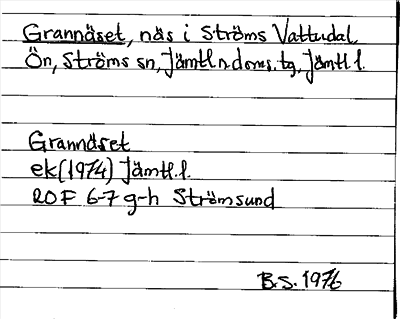 Grannäset, näs i Ströms Vattudal,
Ön, Ströms sn, Jämtl. n. doms. tg, Jämtl l.
Grannäset
ek (1974) Jämtl. l.
20 F 6-7 g-h Strömsund
B.S. 1976